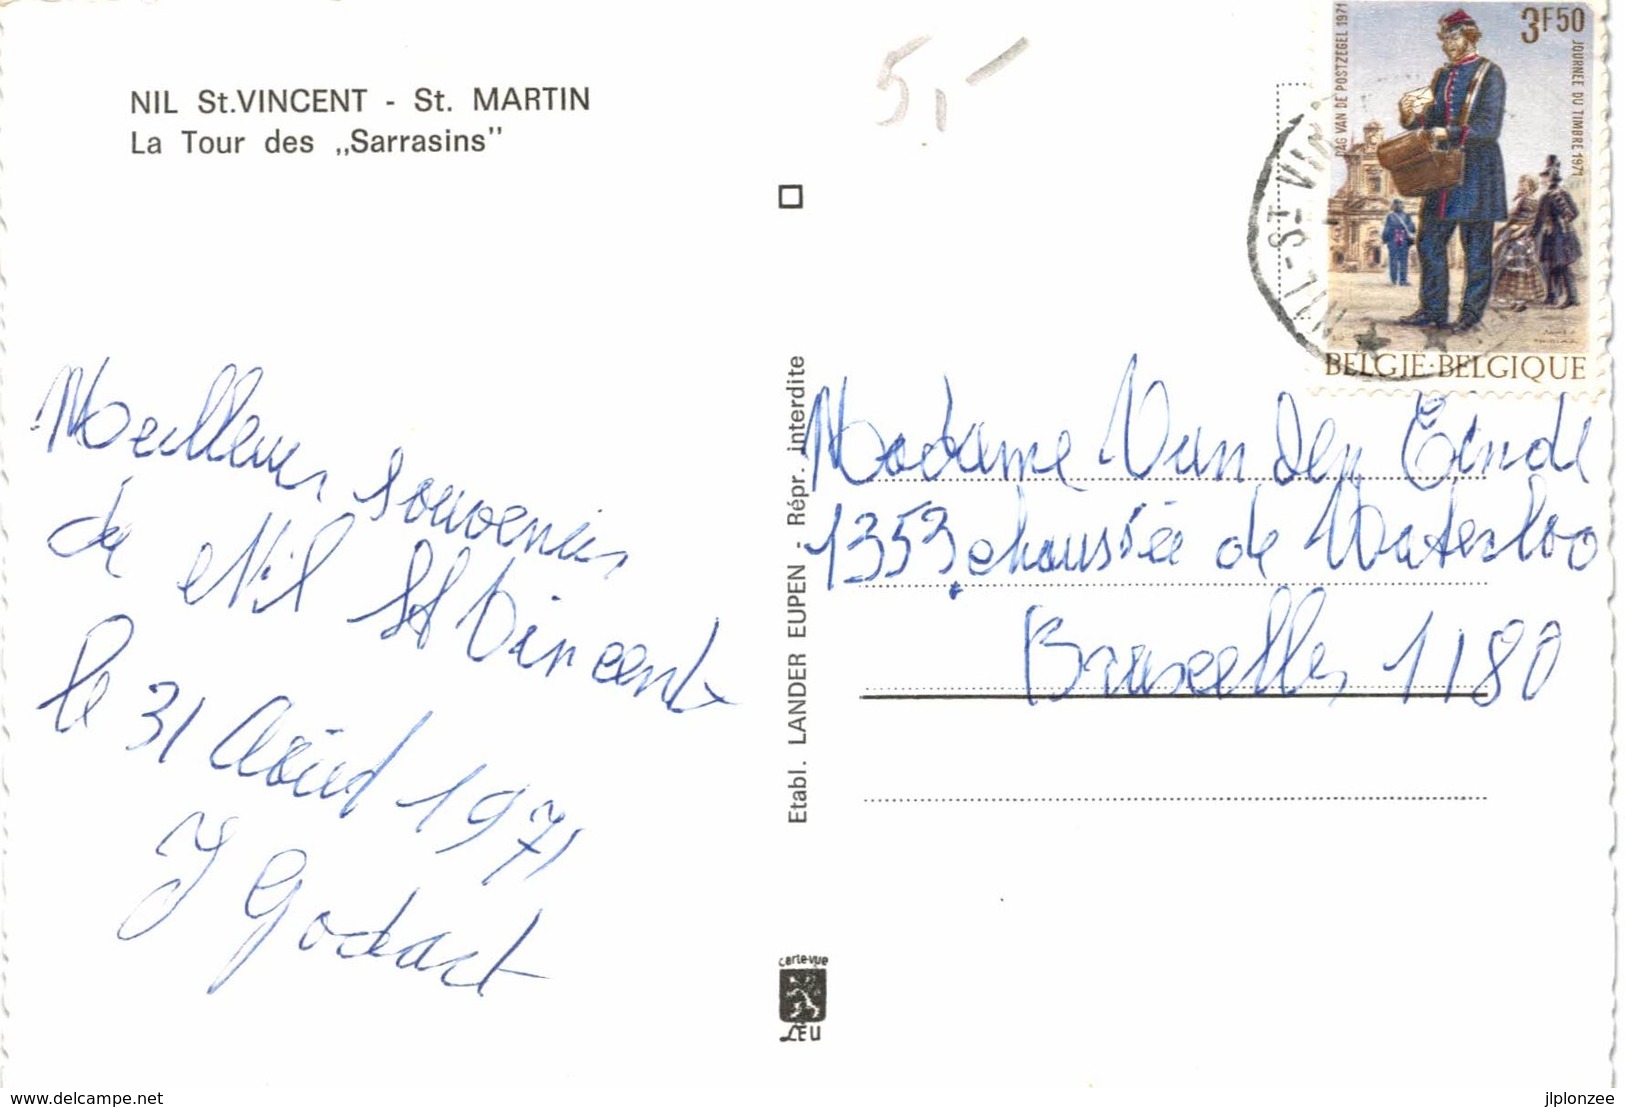 NIL St.VINCENT - St. MARTIN
La Tour des „Sarrasins”
5,-
Meilleurs souvenirs
de Nil St Vincent
le 31 Août 1971
J Godart
Etabl. LANDER EUPEN - Répr. interdite
carte-vue
LEU
3F50
DAG VAN DE POSTZEGEL 1971
JOURNÉE DU TIMBRE 1971
BELGIË·BELGIQUE
NIL-ST-VIN
Madame Van Den Eende
1353, chaussée de Waterloo
Bruxelles 1180
www.delcampe.net
jlplonzee